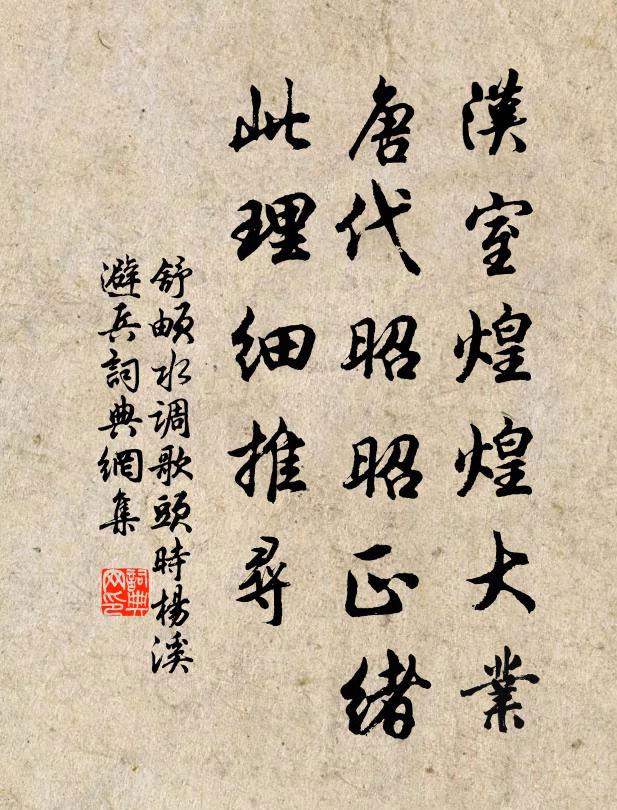 漢室煌煌大業
唐代昭昭正緒
此理細推尋
舒頔水调歌頭時楊溪
避兵詞典網集
詞典网印